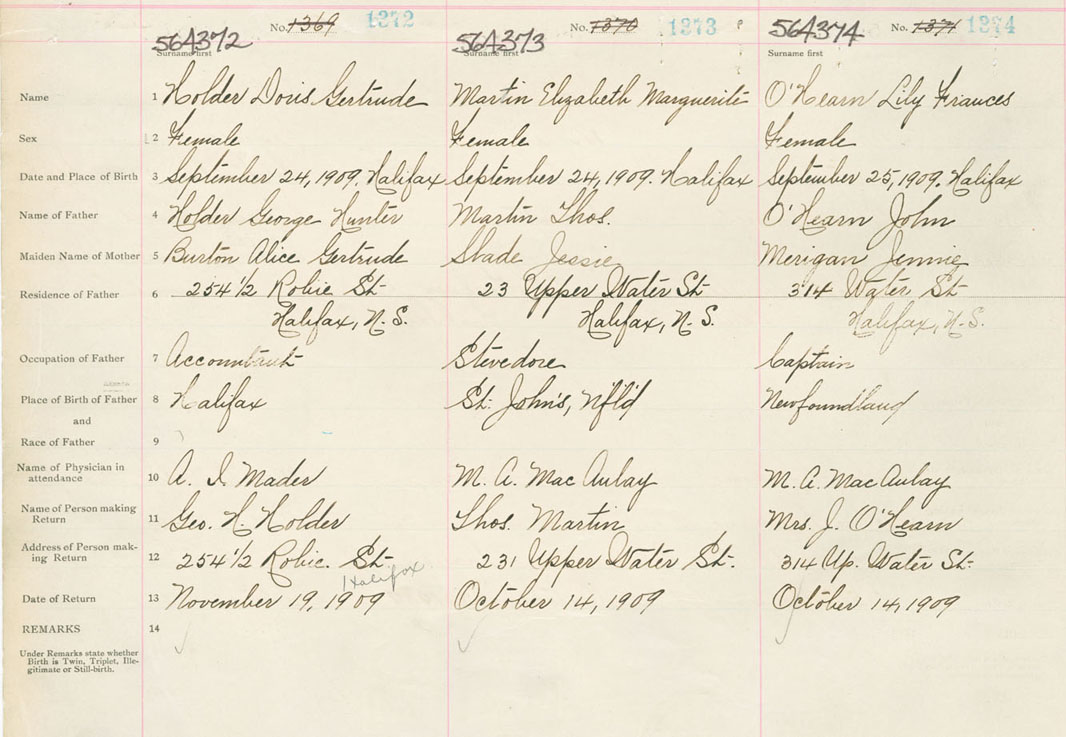 No. 1369 1372 No. 1370 1373 No. 1371 1374
56A372 56A373 56A374
Surname first Surname first Surname first
Name 1 Holder Doris Gertrude Martin Elizabeth Marguerite O'Hearn Lily Frances
Sex 2 Female Female Female
Date and Place of Birth 3 September 24, 1909. Halifax September 24, 1909. Halifax September 25, 1909. Halifax
Name of Father 4 Holder George Hunter Martin Thos. O'Hearn John
Maiden Name of Mother 5 Burton Alice Gertrude Slade Jessie Merigan Jennie
Residence of Father 6 254 1/2 Robie St. 23 Upper Water St. 314 Water St.
Halifax, N.S. Halifax, N.S. Halifax, N.S.
Occupation of Father 7 Accountant Stevedore Captain
Place of Birth of Father 8 Halifax St. John's, Nfl'd Newfoundland
and
Race of Father 9
Name of Physician in
attendance 10 A. I. Mader M. A. MacAulay M. A. MacAulay
Name of Person making
Return 11 Geo. H. Holder Thos. Martin Mrs. J. O'Hearn
Address of Person mak-
ing Return 12 254 1/2 Robie. St. 231 Upper Water St. 314 Up. Water St.
Halifax
Date of Return 13 November 19, 1909 October 14, 1909 October 14, 1909
REMARKS 14
Under Remarks state whether
Birth is Twin, Triplet, Ille-
gitimate or Still-birth.